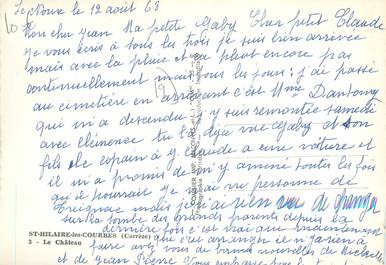 Le 12 août 63
Mon cher Jean Ma petite Gaby Cher petit Claude
je vous écris à tous les trois je suis bien arrivée
mais avec la pluie et ça pleut encore pas
continuellement mais tous les jours j'ai passé
au cimetière en arrivant c'est Mme
qui m'a descendu j'y suis remontée samedi
avec Clémence tu l'a déjà vue Gaby et son
fils le copain à Claude a une voiture et
il m'a promis de m'y amené toutes les fois
qu'il pourrait je n'ai vu personne de
Treignac mais je n'ai rien vu de changer
sur la tombe des grands parents depuis la
dernière fois c'est vrai que maintenant
que c'est arranger il n'y a rien à
faire avez vous de bonnes nouvelles de Michel
et de Jean Pierre
ST-HILAIRE-les-COURBES (Corrèze)
3 - Le Château